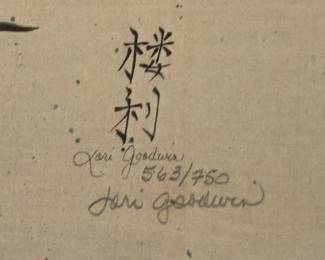 楼
利
Lori Goodwin
563/750
Lori Goodwin